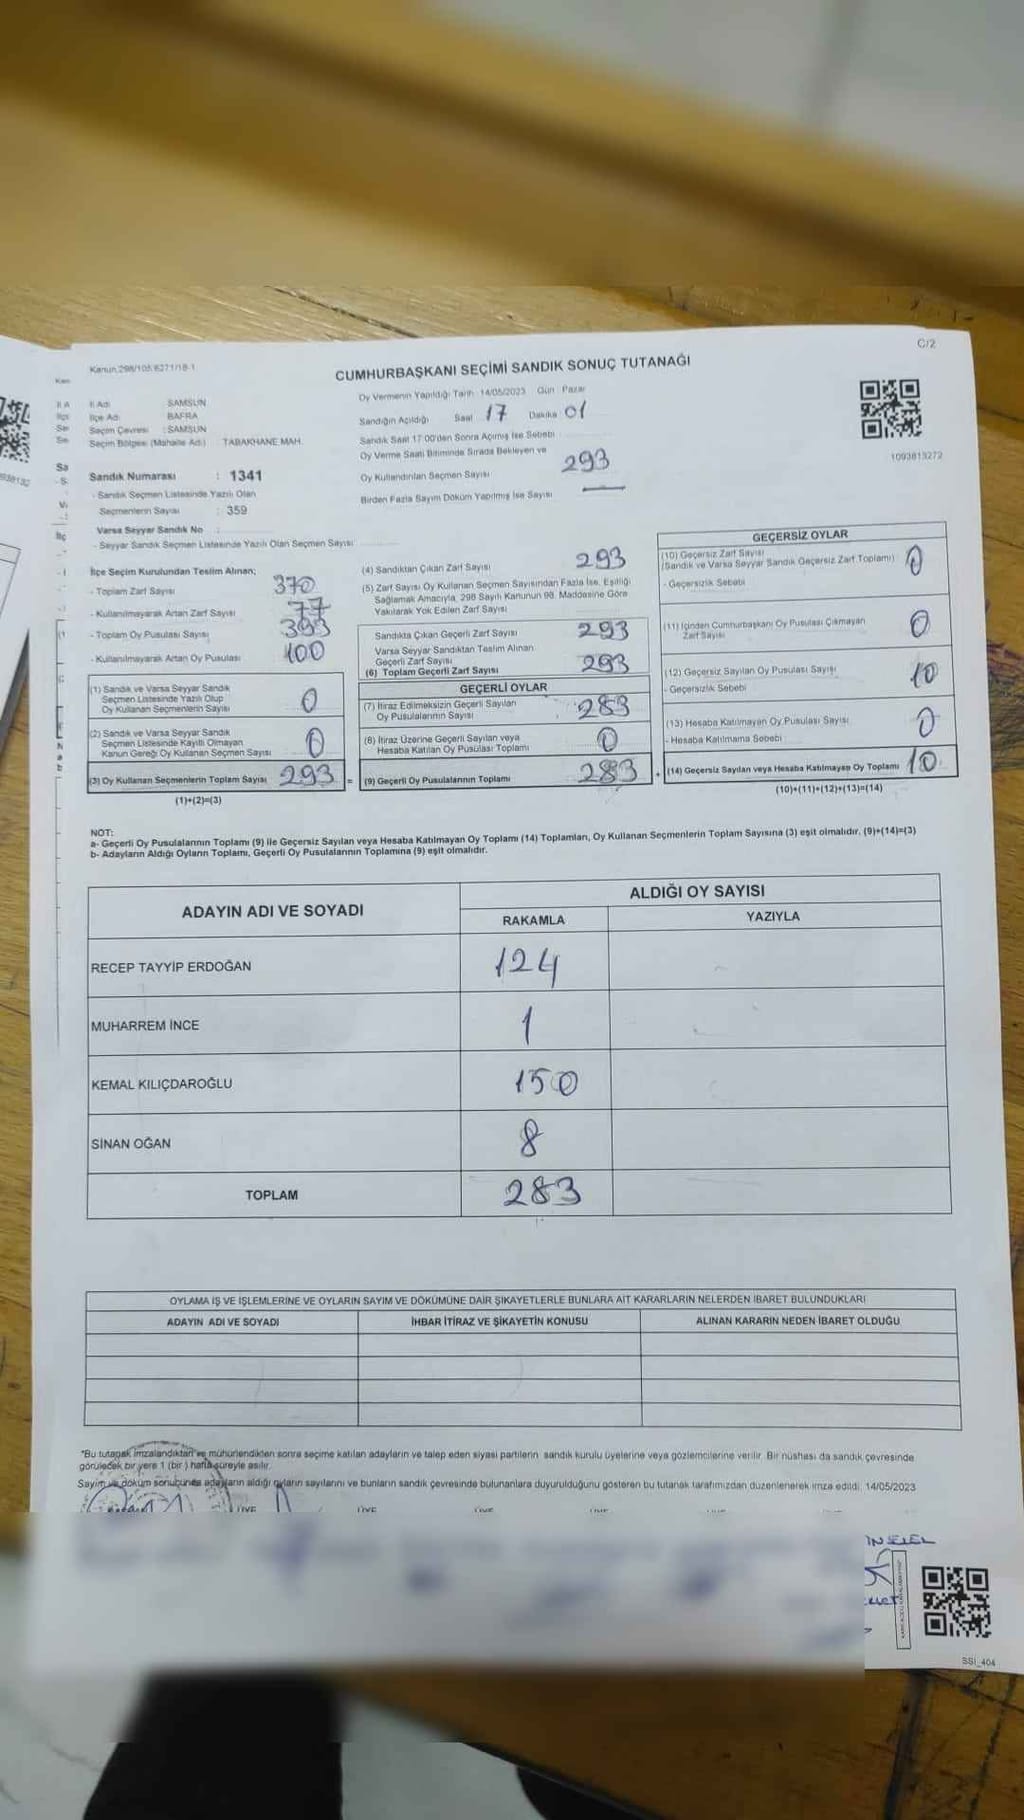 C/2
Kanun 298/105 6271/18-1
CUMHURBAŞKANI SEÇİMİ SANDIK SONUÇ TUTANAĞI
İl Adı SAMSUN
İlçe Adı BAFRA
Seçim Çevresi : SAMSUN
Seçim Bölgesi (Mahalle Adı) TABAKHANE MAH.
Oy Vermenin Yapıldığı Tarih 14/05/2023 Gün Pazar
Sandığın Açıldığı Saat 17 Dakika 01
Sandık Saat 17 00'den Sonra Açılmış İse Sebebi
Oy Verme Saati Bitiminde Sırada Bekleyen ve
Oy Kullandırılan Seçmen Sayısı 293
Birden Fazla Sayım Döküm Yapılmış İse Sayısı —
1093813272
Sandık Numarası : 1341
- Sandık Seçmen Listesinde Yazılı Olan
Seçmenlerin Sayısı : 359
Varsa Seyyar Sandık No :
- Seyyar Sandık Seçmen Listesinde Yazılı Olan Seçmen Sayısı
İlçe Seçim Kurulundan Teslim Alınan;
- Toplam Zarf Sayısı 370
- Kullanılmayarak Artan Zarf Sayısı 77
- Toplam Oy Pusulası Sayısı 393
- Kullanılmayarak Artan Oy Pusulası 100
(1) Sandık ve Varsa Seyyar Sandık
Seçmen Listesinde Yazılı Olup
Oy Kullanan Seçmenlerin Sayısı 0
(2) Sandık ve Varsa Seyyar Sandık
Seçmen Listesinde Kayıtlı Olmayan
Kanun Gereği Oy Kullanan Seçmen Sayısı 0
(3) Oy Kullanan Seçmenlerin Toplam Sayısı 293
(1)+(2)=(3)
(4) Sandıktan Çıkan Zarf Sayısı 293
(5) Zarf Sayısı Oy Kullanan Seçmen Sayısından Fazla İse, Eşitliği
Sağlamak Amacıyla, 298 Sayılı Kanunun 98. Maddesine Göre
Yakılarak Yok Edilen Zarf Sayısı
Sandıkta Çıkan Geçerli Zarf Sayısı 293
Varsa Seyyar Sandıktan Teslim Alınan
Geçerli Zarf Sayısı
(6) Toplam Geçerli Zarf Sayısı 293
GEÇERLİ OYLAR
(7) İtiraz Edilmeksizin Geçerli Sayılan
Oy Pusulalarının Sayısı 283
(8) İtiraz Üzerine Geçerli Sayılan veya
Hesaba Katılan Oy Pusulası Toplamı 0
= (9) Geçerli Oy Pusulalarının Toplamı 283
GEÇERSİZ OYLAR
(10) Geçersiz Zarf Sayısı
(Sandık ve Varsa Seyyar Sandık Geçersiz Zarf Toplamı) 0
- Geçersizlik Sebebi
(11) İçinden Cumhurbaşkanı Oy Pusulası Çıkmayan
Zarf Sayısı 0
(12) Geçersiz Sayılan Oy Pusulası Sayısı 10
- Geçersizlik Sebebi
(13) Hesaba Katılmayan Oy Pusulası Sayısı 0
- Hesaba Katılmama Sebebi :
+ (14) Geçersiz Sayılan veya Hesaba Katılmayan Oy Toplamı 10
(10)+(11)+(12)+(13)=(14)
NOT:
a- Geçerli Oy Pusulalarının Toplamı (9) ile Geçersiz Sayılan veya Hesaba Katılmayan Oy Toplamı (14) Toplamları, Oy Kullanan Seçmenlerin Toplam Sayısına (3) eşit olmalıdır. (9)+(14)=(3)
b- Adayların Aldığı Oyların Toplamı, Geçerli Oy Pusulalarının Toplamına (9) eşit olmalıdır.
ADAYIN ADI VE SOYADI
ALDIĞI OY SAYISI
RAKAMLA YAZIYLA
RECEP TAYYİP ERDOĞAN 124
MUHARREM İNCE 1
KEMAL KILIÇDAROĞLU 150
SİNAN OĞAN 8
TOPLAM 283
OYLAMA İŞ VE İŞLEMLERİNE VE OYLARIN SAYIM VE DÖKÜMÜNE DAİR ŞİKAYETLERLE BUNLARA AİT KARARLARIN NELERDEN İBARET BULUNDUKLARI
ADAYIN ADI VE SOYADI İHBAR İTİRAZ VE ŞİKAYETİN KONUSU ALINAN KARARIN NEDEN İBARET OLDUĞU
*Bu tutanak imzalandıktan ve mühürlendikten sonra seçime katılan adayların ve talep eden siyasi partilerin sandık kurulu üyelerine veya gözlemcilerine verilir. Bir nüshası da sandık çevresinde
görülecek bir yere 1 (bir) hafta süreyle asılır.
Sayım ve döküm sonucunda adayların aldığı oyların sayılarını ve bunların sandık çevresinde bulunanlara duyurulduğunu gösteren bu tutanak tarafımızdan düzenlenerek imza edildi. 14/05/2023
SSI_404